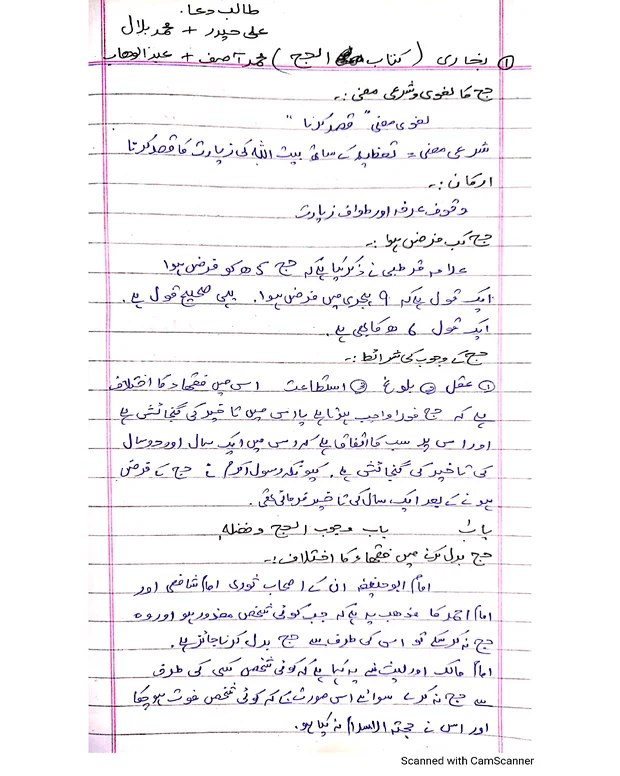 طالب دعا.
علی حیدر + محمد بلال
① بخاری (کتاب الحج) محمد آصف + عبدالوھاب
حج کا لغوی و شرعی معنی :۔
لغوی معنی " قصد کرنا "
شرعی معنی = تعظیم کے ساتھ بیت اللہ کی زیارت کا قصد کرنا
ارکان :۔
وقوف عرفہ اور طواف زیارت
حج کب فرض ہوا :۔
علامہ قرطبی نے ذکر کیا ہے کہ حج 5ھ کو فرض ہوا
ایک قول ہے کہ 9 ہجری میں فرض ہوا. یہی صحیح قول ہے.
ایک قول 6 ھ کا بھی ہے.
حج کے وجوب کی شرائط :۔
① عقل ② بلوغ ③ استطاعت اس میں فقھاء کا اختلاف
ہے کہ حج فورا واجب ہوتا ہے یا اس میں تاخیر کی گنجائش ہے
اور اس پر سب کا اتفاق ہے کہ اس میں ایک سال اور دو سال
کی تاخیر کی گنجائش ہے. کیونکہ رسول اکرم نے حج کے فرض
ہونے کے بعد ایک سال کی تاخیر فرمائی تھی.
باب وجوب الحج وفضلہ
حج بدل کرنے میں فقھاء کا اختلاف :۔
امام ابوحنیفہ ان کے اصحاب ثوری امام شافعی اور
امام احمد کا مذھب یہ ہے کہ جب کوئی شخص معذور ہو اور وہ
حج نہ کر سکے تو اس کی طرف سے حج بدل کرنا جائز ہے.
امام مالک اور لیث نے یہ کہا ہے کہ کوئی شخص کسی کی طرف
سے حج نہ کرے سوائے اس صورت کے کہ کوئی شخص فوت ہو چکا
اور اس نے حجۃ الاسلام نہ کیا ہو.
Scanned with CamScanner